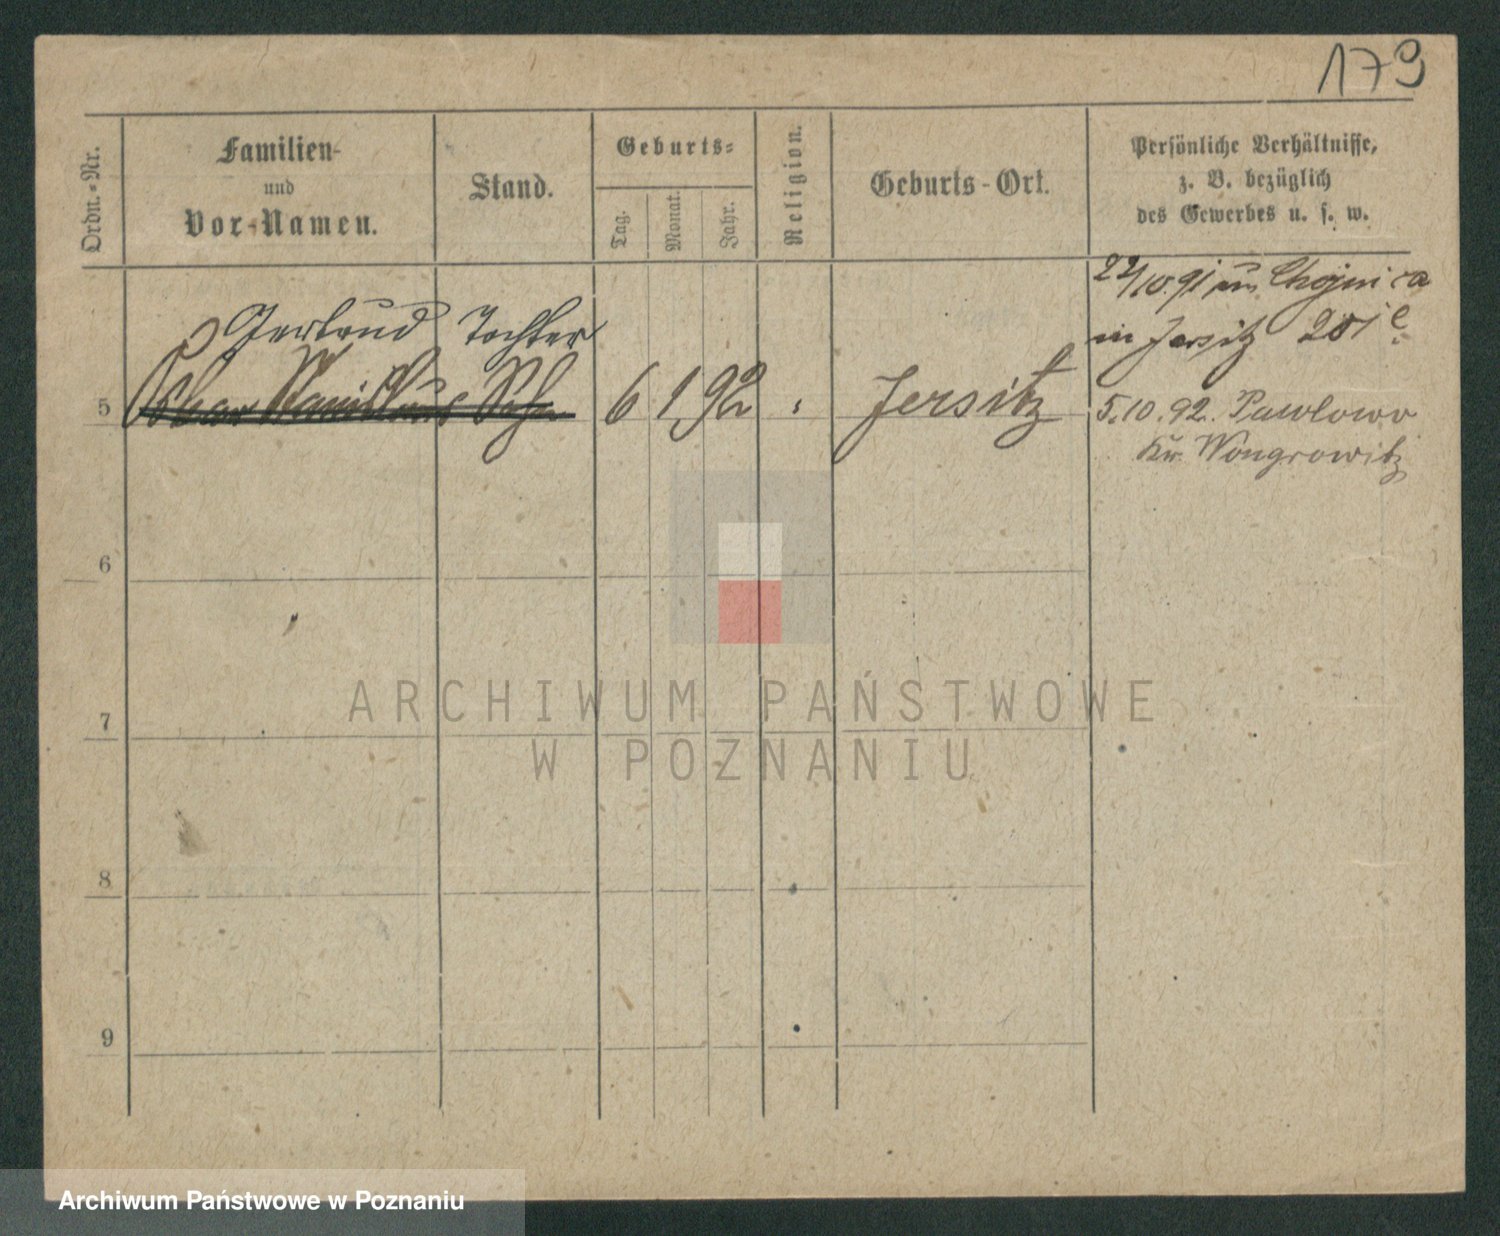 179
Ordn.-Nr.
Familien-
und
Vor-Namen.
Stand.
Geburts-
Tag.
Monat.
Jahr.
Religion.
Geburts-Ort.
Persönliche Verhältnisse,
z. B. bezüglich
des Gewerbes u. s. w.
22/10.91 Chojnica
in Jersitz 201
Gertrud Tochter
5 Oskar Stanislaus Sohn 6 1 92 Jersitz
5.10.92. Pawlowo
Kr. Wongrowitz
6
7
8
9
ARCHIWUM PAŃSTWOWE
W POZNANIU
Archiwum Państwowe w Poznaniu